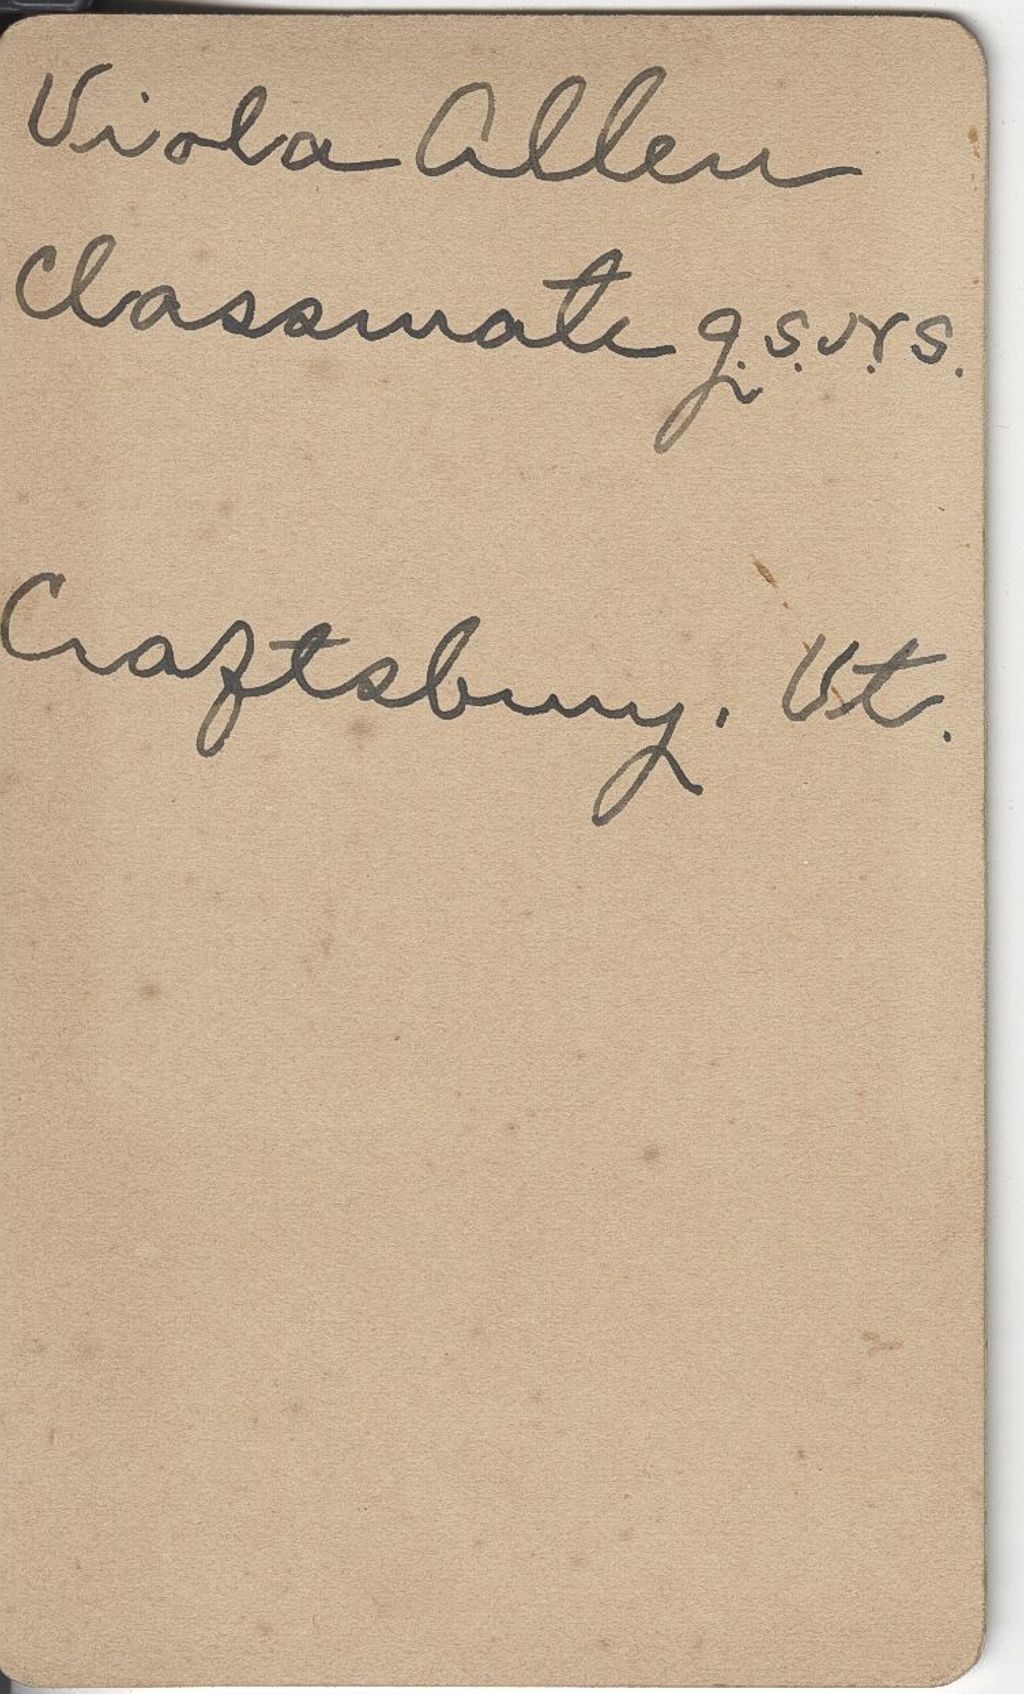 Viola Allen
Classmate g.S.N.S.
Craftsbury. Vt.